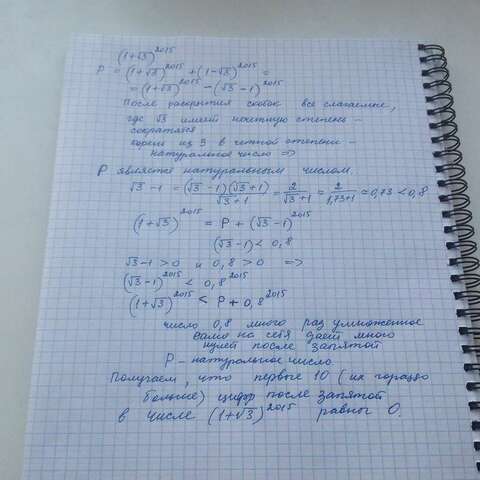 (1+√3)^2015
P = (1+√3)^2015 + (1-√3)^2015 =
= (1+√3)^2015 - (√3-1)^2015
После раскрытия скобок все слагаемые,
где √3 имеет нечетную степень -
сократятся
корень из 3 в четной степени -
натуральное число =>
P является натуральным числом.
√3-1 = (√3-1)(√3+1)/√3+1 = 2/√3+1 ≈ 2/1,73+1 ≈ 0,73 < 0,8
(1+√3)^2015 = P + (√3-1)^2015
(√3-1) < 0,8
√3-1 > 0 и 0,8 > 0 =>
(√3-1)^2015 < 0,8^2015
(1+√3)^2015 < P + 0,8^2015
число 0,8 много раз умноженное
само на себя даёт много
нулей после запятой
P - натуральное число.
Получаем, что первые 10 (их гораздо
больше) цифр после запятой
в числе (1+√3)^2015 равны 0.